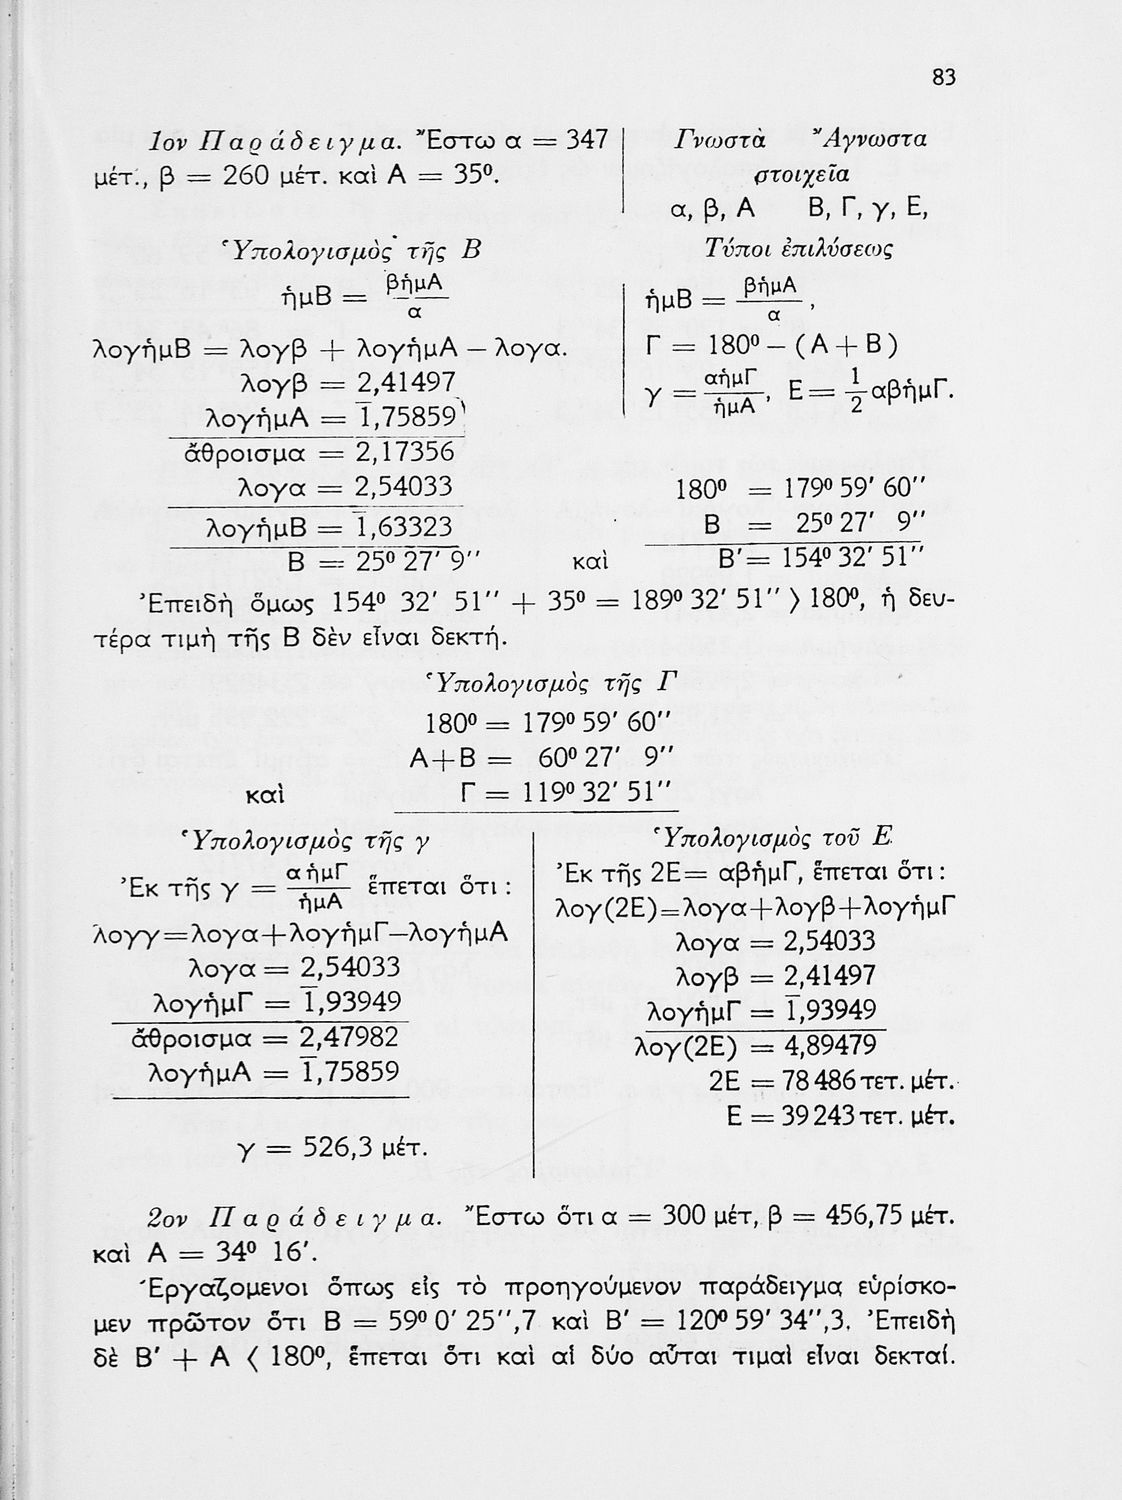 83
1ον Παράδειγμα. Ἔστω α = 347
μέτ., β = 260 μέτ. καὶ Α = 35⁰.
Γνωστὰ Ἄγνωστα
στοιχεῖα
α, β, Α Β, Γ, γ, Ε,
Ὑπολογισμὸς τῆς Β
ἡμΒ = βἡμΑ / α
λογἡμΒ = λογβ + λογἡμΑ – λογα.
λογβ = 2,41497
λογἡμΑ = 1̅,75859
ἄθροισμα = 2,17356
λογα = 2,54033
λογἡμΒ = 1̅,63323
Β = 25⁰ 27′ 9″
Τύποι ἐπιλύσεως
ἡμΒ = βἡμΑ / α ,
Γ = 180⁰ – (Α + Β)
γ = αἡμΓ / ἡμΑ , Ε = 1/2 αβἡμΓ.
180⁰ = 179⁰ 59′ 60″
Β = 25⁰ 27′ 9″
καὶ Β′ = 154⁰ 32′ 51″
Ἐπειδὴ ὅμως 154⁰ 32′ 51″ + 35⁰ = 189⁰ 32′ 51″ ⟩ 180⁰, ἡ δευ-
τέρα τιμὴ τῆς Β δὲν εἶναι δεκτή.
Ὑπολογισμὸς τῆς Γ
180⁰ = 179⁰ 59′ 60″
Α+Β = 60⁰ 27′ 9″
καὶ Γ = 119⁰ 32′ 51″
Ὑπολογισμὸς τῆς γ
Ἐκ τῆς γ = αἡμΓ / ἡμΑ ἕπεται ὅτι :
λογγ=λογα+λογἡμΓ–λογἡμΑ
λογα = 2,54033
λογἡμΓ = 1̅,93949
ἄθροισμα = 2,47982
λογἡμΑ = 1̅,75859
γ = 526,3 μέτ.
Ὑπολογισμὸς τοῦ Ε
Ἐκ τῆς 2Ε= αβἡμΓ, ἕπεται ὅτι :
λογ(2Ε)=λογα+λογβ+λογἡμΓ
λογα = 2,54033
λογβ = 2,41497
λογἡμΓ = 1̅,93949
λογ(2Ε) = 4,89479
2Ε = 78 486 τετ. μέτ.
Ε = 39 243 τετ. μέτ.
2ον Παράδειγμα. Ἔστω ὅτι α = 300 μέτ, β = 456,75 μέτ.
καὶ Α = 34⁰ 16′.
Ἐργαζομενοι ὅπως εἰς τὸ προηγούμενον παράδειγμα εὑρίσκο-
μεν πρῶτον ὅτι Β = 59⁰ 0′ 25″,7 καὶ Β′ = 120⁰ 59′ 34″,3. Ἐπειδὴ
δὲ Β′ + Α ⟨ 180⁰, ἕπεται ὅτι καὶ αἱ δύο αὗται τιμαὶ εἶναι δεκταί.